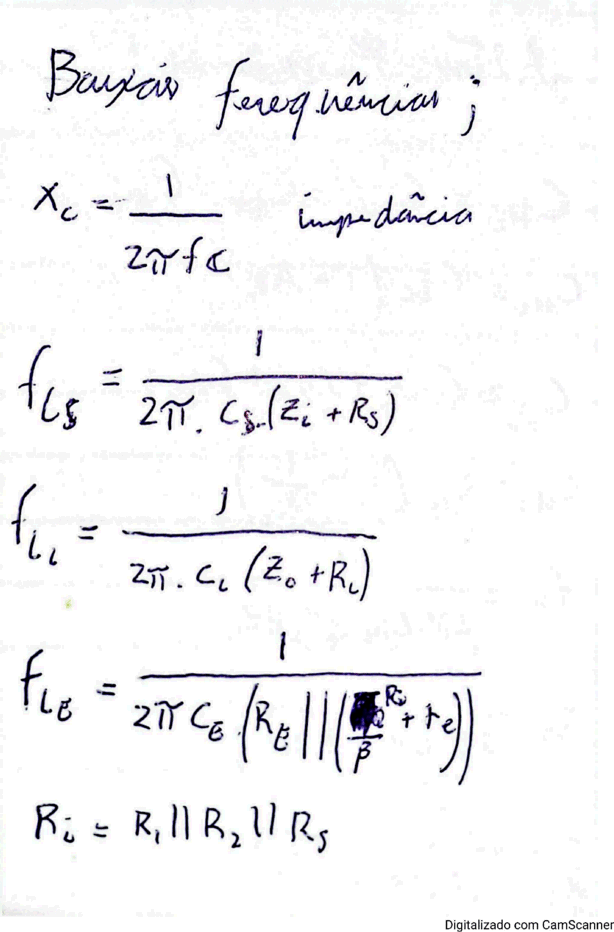 Baixas frequências;
X_C = 1 / 2πfC impedância
f_LS = 1 / 2π. C_S.(Z_i + R_S)
f_LL = 1 / 2π. C_L (Z_o + R_L)
f_LE = 1 / 2π C_E.(R_E || (R_i/β + r_e))
R_i = R_1 || R_2 || R_S
Digitalizado com CamScanner